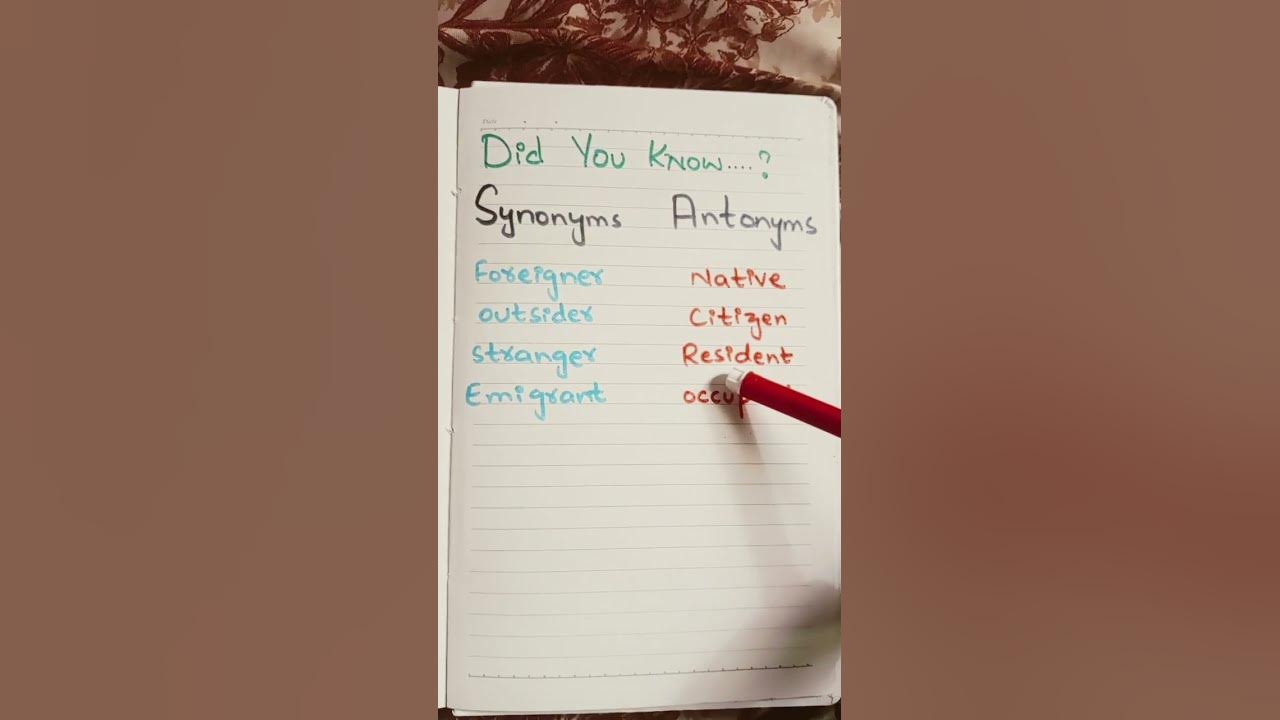 Date
Did You Know....?
Synonyms Antonyms
Foreigner Native
outsider Citizen
stranger Resident
Emigrant